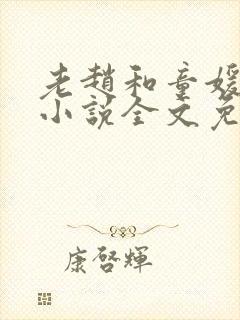 老趙和童媛
小說全文免
康啓輝